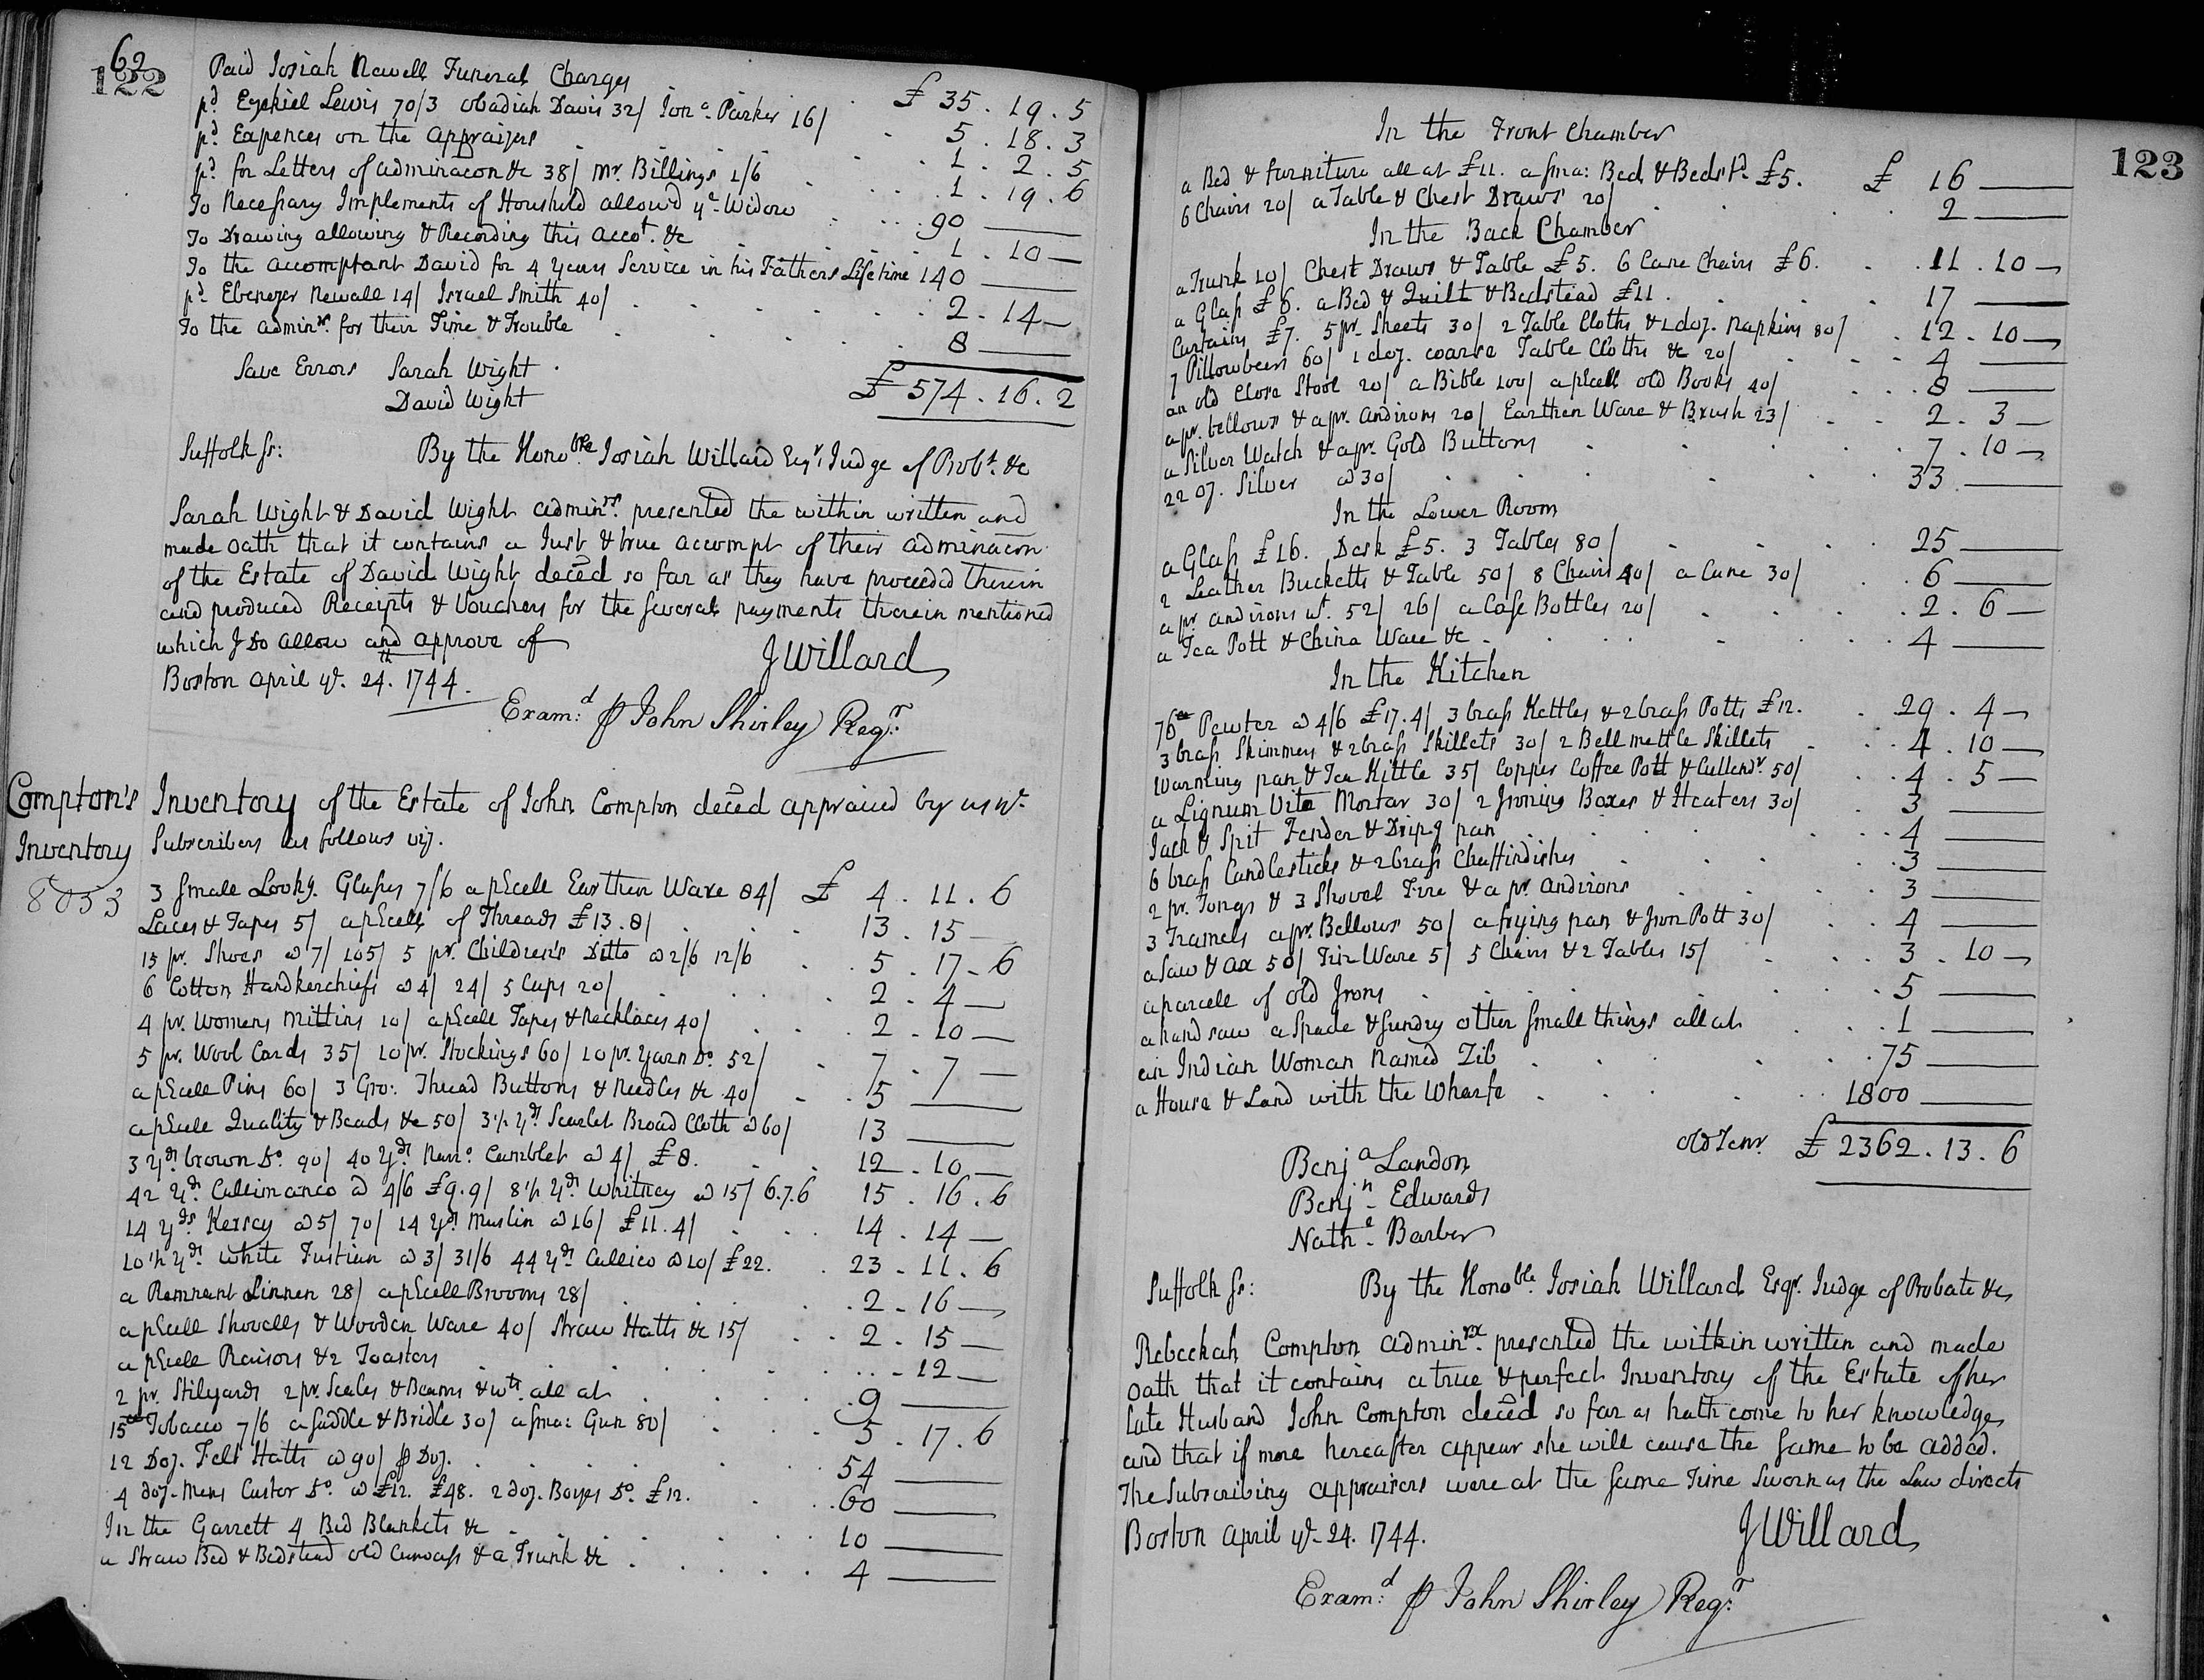 62
122
Paid Josiah Newell Funeral Charges . £ 35 . 19 . 5
pd. Ezekiel Lewis 70/3 Obadiah Davis 32/ Jona. Parker 16/ . 5 . 18 . 3
pd. Expences on the appraizers . 1 . 2 . 5
pd. for Letters of adminacon &c 38/ Mr. Billings 1/6 . 1 . 19 . 6
To Necessary Implements of Houshold allow'd ye. Widow . 90 ——
To Drawing allowing & Recording this Accot. &c . 1 . 10 —
To the accomptant David for 4 years Service in his Fathers Lifetime 140 ——
pd. Ebenezer Newall 14/ Israel Smith 40/ . 2 . 14 —
To the adminrs. for their Time & Trouble . 8 ——
Save Errors Sarah Wight . £ 574 . 16 . 2
David Wight
Suffolk ss: By the Honoble. Josiah Willard Esqr. Judge of Probt. &c
Sarah Wight & David Wight adminrs. presented the within written and
made Oath that it contains a Just & true accompt of their adminacon
of the Estate of David Wight deced so far as they have proceeded therein
and produced Receipts & Vouchers for the several payments therein mentioned
which I Do allow and approve of
Boston april ye. 24.th 1744. J Willard
Exam:d ℘ John Shirley Regr.
Compton's
Inventory
8053
Inventory of the Estate of John Compton deced appraised by us ye.
Subscribers as follows viz.
3 small Lookg. Glasses 7/6 a pcell Earthen Ware 84/ £ 4 . 11 . 6
Laces & Tapes 5/ a pcell of Threads £13 . 8/ . 13 . 15 —
15 pr. Shoes @ 7/ 105/ 5 pr. Children's Ditto @ 2/6 12/6 . 5 . 17 . 6
6 Cotton Handkerchiefs @ 4/ 24/ 5 Cups 20/ . 2 . 4 —
4 pr. Womens Mittins 10/ a pcell Tapes & Necklaces 40/ . 2 . 10 —
5 pr. Wool Cards 35/ 10 pr. Stockings 60/ 10 pr. yarn Do. 52/ . 7 . 7 —
a pcell Pins 60/ 3 Gro: Thread Buttons & Needles &c 40/ . 5 ——
a pcell Quality & Beads &c 50/ 3½ yds. Scarlet Broad Cloth @ 60/ 13 ——
3 yds. brown Do. 90/ 40 yds. Narro. Camblet @ 4/ £8. . 12 . 10 —
42 yds. Callimanco @ 4/6 £9.9/ 8½ yds. Whitney @ 15/ 6.7.6 15 . 16 . 6
14 yds. Kersey @ 5/ 70/ 14 yds. Muslin @ 16/ £11.4/ . 14 . 14 —
10½ yds. white Fustian @ 3/ 31/6 44 yds. Callico @ 10/ £22. . 23 . 11 . 6
a Remnant Linnen 28/ a pcell Brooms 28/ . 2 . 16 —
a pcell Shovells & Wooden Ware 40/ Straw Hatts &c 15/ . 2 . 15 —
a pcell Raisons & 2 Toasters . 12 —
2 pr. Stilyards 2 pr. Scales & Beams & wts. all at . 9 ——
15 lb Tobacco 7/6 a Saddle & Bridle 30/ a sma: Gun 80/ . 5 . 17 . 6
12 Doz. Felt Hatts @ 90/ ℘ Doz. . 54 ——
4 doz. Mens Castor Do. @ £12. £48. 2 doz. Boyes Do. £12. . 60 ——
In the Garrett 4 Bed Blankets &c . 10 ——
a Straw Bed & Bedstead old Canvass & a Trunk &c . 4 ——
123
In the Front Chamber
a Bed & furniture all at £11. a sma: Bed & Bedstd. £5. £ 16 ——
6 Chairs 20/ a Table & Chest Draws 20/ . 2 ——
In the Back Chamber
a Trunk 10/ Chest Draws & Table £5. 6 Cane Chairs £6. . 11 . 10 —
a Glass £6. a Bed & Quilt & Bedstead £11. . 17 ——
Curtains £7. 5 pr. Sheets 30/ 2 Table Cloths & 1 doz. Napkins 80/ . 12 . 10 —
7 Pillowbeers 60/ 1 doz. coarse Table Cloths &c 20/ . 4 ——
an old Close Stool 20/ a Bible 100/ a pcell old Books 40/ . 8 ——
a pr. bellows & a pr. andirons 20/ Earthen Ware & Brush 23/ . 2 . 3 —
a Silver Watch & a pr. Gold Buttons . 7 . 10 —
22 oz. Silver @ 30/ . 33 ——
In the Lower Room
a Glass £16. Desk £5. 3 Tables 80/ . 25 ——
2 Leather Bucketts & Table 50/ 8 Chairs 40/ a Cane 30/ . 6 ——
a pr. andirons wt. 52/ 26/ a Case Bottles 20/ . 2 . 6 —
a Tea Pott & China Ware &c . 4 ——
In the Kitchen
76 lb Pewter @ 4/6 £17.4/ 3 brass Kettles & 2 brass Potts £12. . 29 . 4 —
3 brass Skimmers & 2 brass Skillets 30/ 2 Bell mettle Skillets . 4 . 10 —
Warming pan & Tea Kittle 35/ Copper Coffee Pott & Cullendr. 50/ . 4 . 5 —
a Lignum Vite Mortar 30/ 2 Ironing Boxes & Heaters 30/ . 3 ——
Jack & Spit Fender & Dripg pan . 4 ——
6 brass Candlesticks & 2 brass Chaffindishes . 3 ——
2 pr. Tongs & 3 Shovel Fire & a pr. andirons . 3 ——
3 Tramels a pr. Bellows 50/ a frying pan & Iron Pott 30/ . 4 ——
a Saw & Ax 50/ Tin Ware 5/ 5 Chairs & 2 Tables 15/ . 3 . 10 —
a parcell of Old Irons . 5 ——
a hand saw a Spade & Sundry other small things all at . 1 ——
an Indian Woman Named Zib . 75 ——
a House & Land with the Wharfe . 1800 ——
Old Tenr. £ 2362 . 13 . 6
Benja. Landon
Benjn. Edwards
Nathl. Barber
Suffolk ss: By the Honoble. Josiah Willard Esqr. Judge of Probate &c
Rebeckah Compton adminrx. presented the within written and made
Oath that it contains a true & perfect Inventory of the Estate of her
late Husband John Compton deced so far as hath come to her knowledge,
and that if more hereafter appear she will cause the same to be added.
The Subscribing appraisers were at the same Time sworn as the Law directs
Boston april ye. 24. 1744. J Willard
Exam:d ℘ John Shirley Regr.